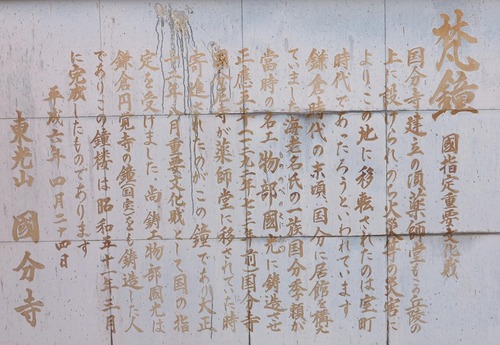 梵鐘 國指定重要文化戝
国分寺建立の頃薬師堂もこの丘陵の
上に設けられ
よりこの地に移転されたのは室町
時代であったろうといわれています
鎌倉時代の末頃、国分に居館を構え
て
た海老名氏の一族国分季頼が
當時の名工物部國光に鋳造させ
正應五年(一二九二年七三年前)国分寺
が薬師堂に移されていた時
寄進されたのがこの鐘であり大正
十二年八月重要文化戝として国の指
定を受けました、尚鋳工物部國光は
鎌倉円覚寺の鐘(国宝)をも鋳造した人
でありこの鐘楼は昭和五十一年三月
に完成したものであります
平成六年四月二十四日
東光山 國分寺